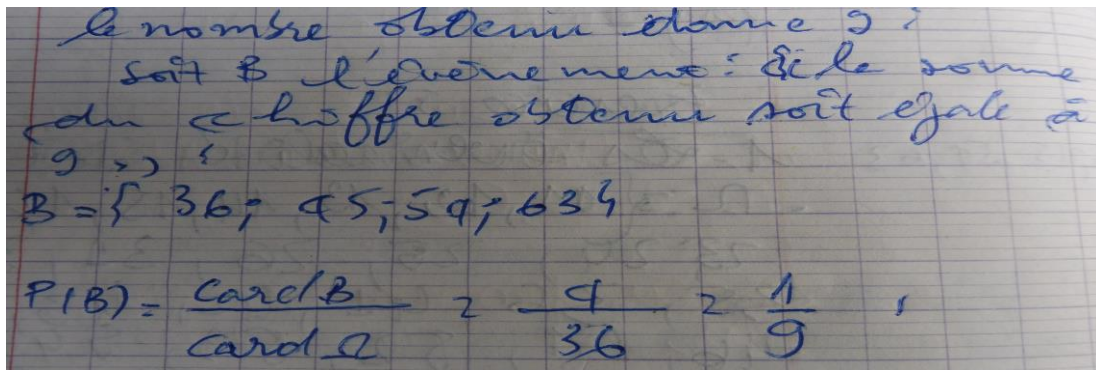 le nombre obtenu donne 9 :
soit B l'évènement : « le somme
du chiffre obtenu soit egale à
9 »
B = { 36; 45; 54; 63}
P(B) = card B / card Ω = 4 / 36 = 1 / 9